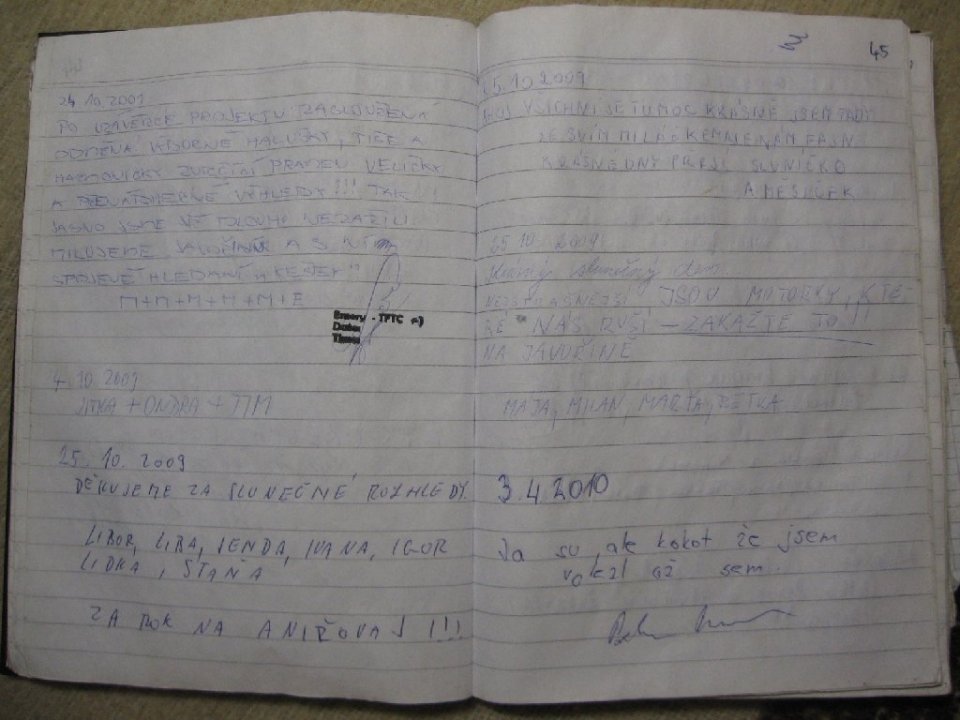 24.10.2009
PO UZÁVĚRCE PROJEKTU ZASLOUŽENÁ
ODMĚNA VÝBORNÉ HALUŠKY, TIŠE A
PRAMEN VELIČKY
A VÝHLEDY!!! TAK
JASNO JSME UŽ DLOUHO NEZAŽILI
MILUJEME A S NÍ
SPOJENÉ HLEDÁNÍ KEŠEK!!
M+M+M+M+M+E
Emery - TFTC =)
Date:
Time:
4.10.2009
JITKA + ONDRA + TIM
25. 10. 2009
DĚKUJEME ZA SLUNEČNÉ ROZHLEDY.
LIBOR, LIBA, JENDA, IVANA, IGOR
LIDKA, STAŇA
ZA ROK NA !!!
45
25.10.2009
AHOJ VŠICHNI JE TU MOC KRÁSNĚ JSEM TADY
ZE SVÍM MILÁČKEM A JE NÁM FAJN
KRÁSNÉ DNY PŘEJÍ SLUNÍČKO
A MĚSÍČEK
25 10. 2009
Krásný slunečný den
NEJSTRAŠNĚJŠÍ JSOU MOTORKY, KTE
RÉ NÁS RUŠÍ – ZAKAŽTE TO!!
NA JAVOŘINĚ
MÁJA, MILAN, MARTA, BĚTKA
3.4.2010
Ja su ,ale kokot že jsem
volezl až sem.